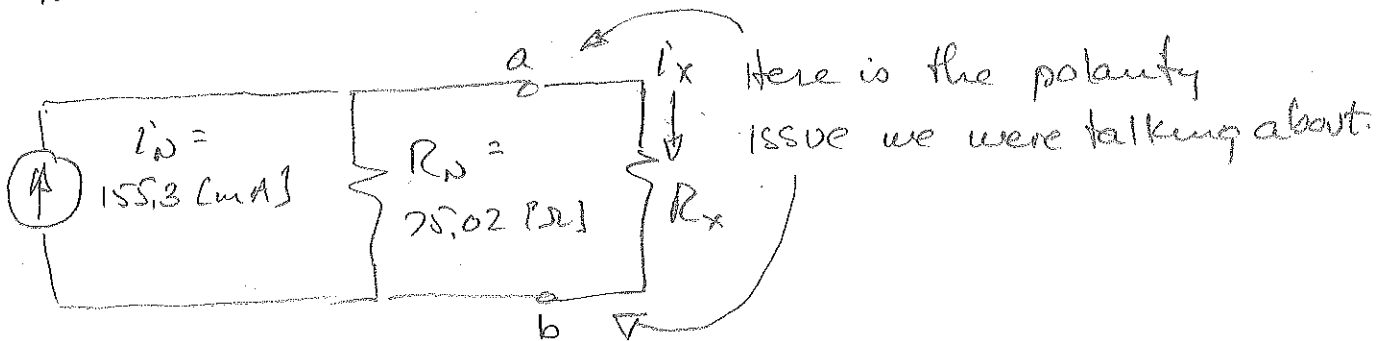 a
i_x Here is the polarity
issue we were talking about.
i_N =
155,3 [mA]
R_N =
75,02 [Ω]
R_x
b